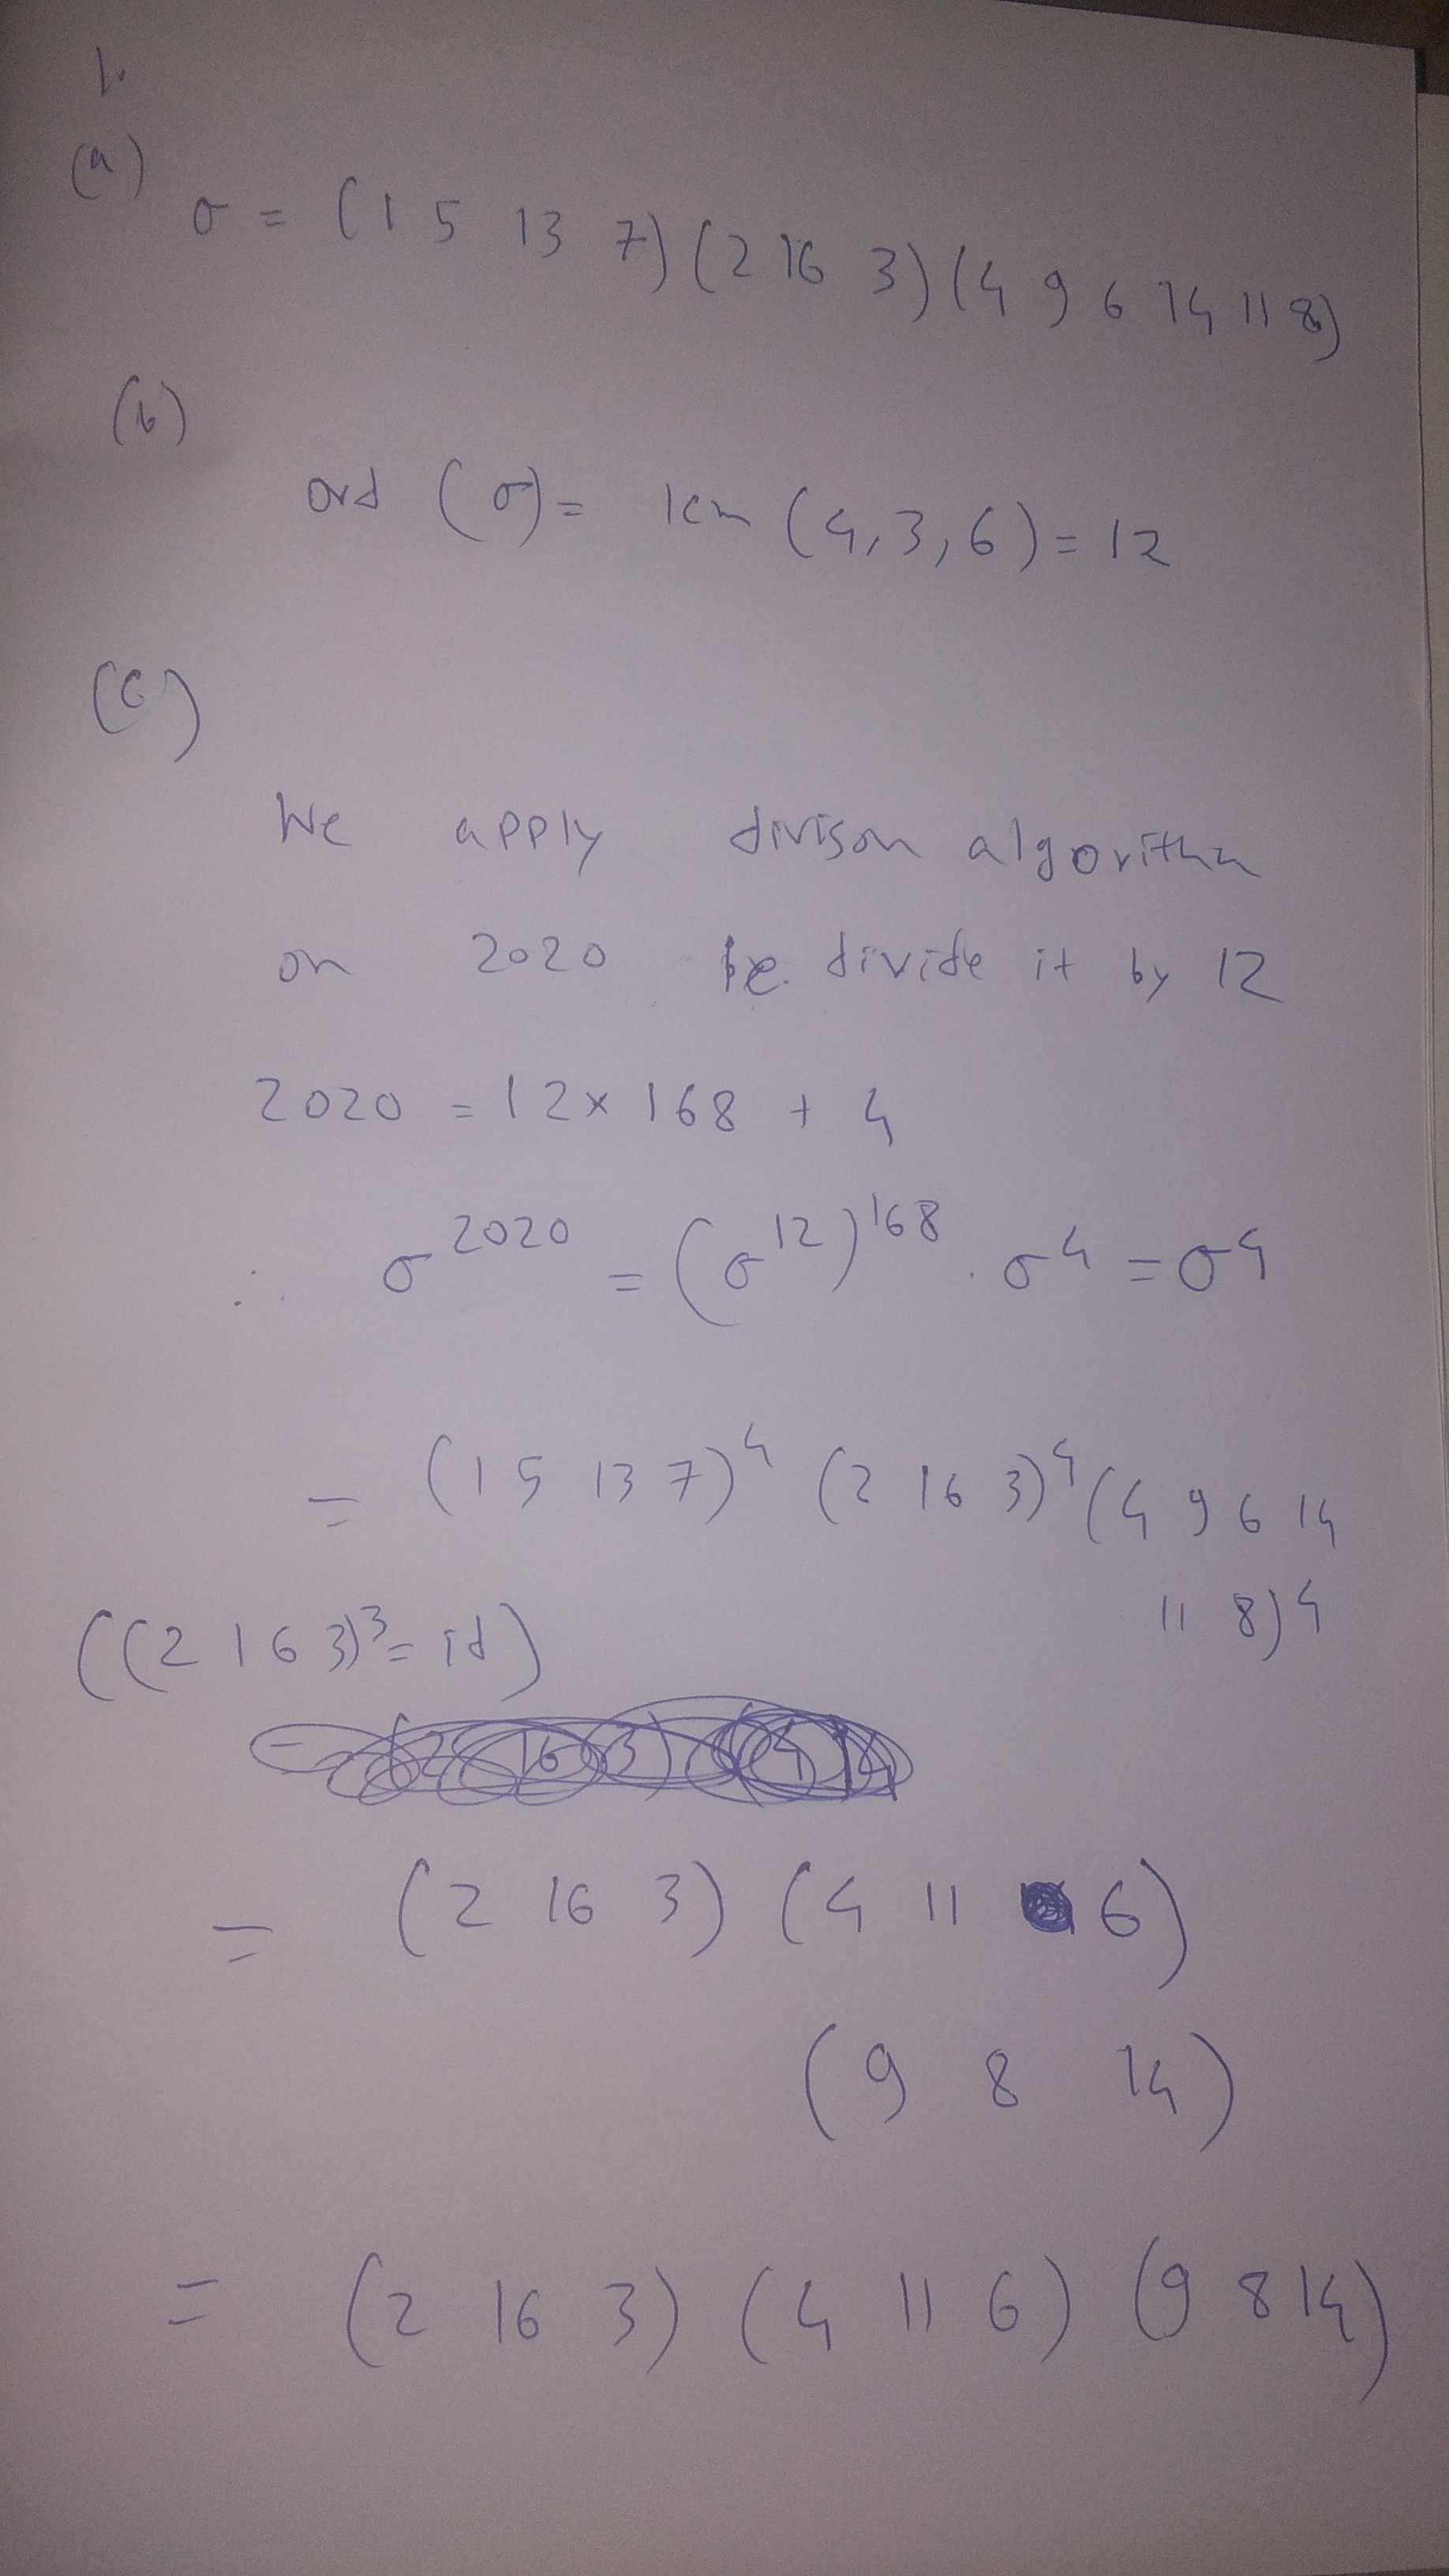 1.
(a)
σ = (1 5 13 7)(2 16 3)(4 9 6 14 11 8)
(b)
ord (σ) = lcm (4,3,6) = 12
(c)
We apply divison algorithm
on 2020 ie. divide it by 12
2020 = 12 × 168 + 4
∴ σ^2020 = (σ^12)^168 . σ^4 = σ^4
= (1 5 13 7)^4 (2 16 3)^4 (4 9 6 14
11 8)^4
((2 16 3)^3 = id)
= (2 16 3) (4 11 6)
(9 8 14)
= (2 16 3) (4 11 6) (9 8 14)